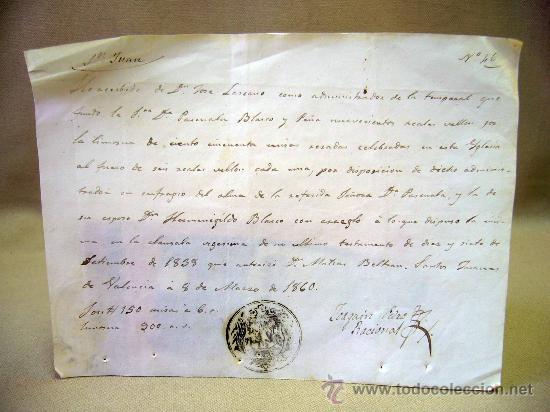 Sn. Juan Nº 46
He recibido de Dn. Jose Lozcano como administrador de la temporal que
fundó la Sra. Da. Pascuala Blasco y Peña nuevecientos reales vellon por
la limosna de ciento cincuenta misas rezadas celebradas en esta Iglesia
al fuero de seis reales vellon cada una, por disposicion de dicho adminis-
trador en sufragio del alma de la referida Señora Da. Pascuala, y la de
su esposo Dn. Hermenegildo Blasco con arreglo á lo que dispuso la mis-
ma en la clausula vigesima de su ultimo testamento de diez y siete de
Setiembre de 1838 que autorizó Dn. Matias Beltran. Santos Juanes
de Valencia á 8 de Marzo de 1860.
Son 150 misas á 6 r.
limosna 900 r. v.
Joaquin
Racional
todocoleccion.net